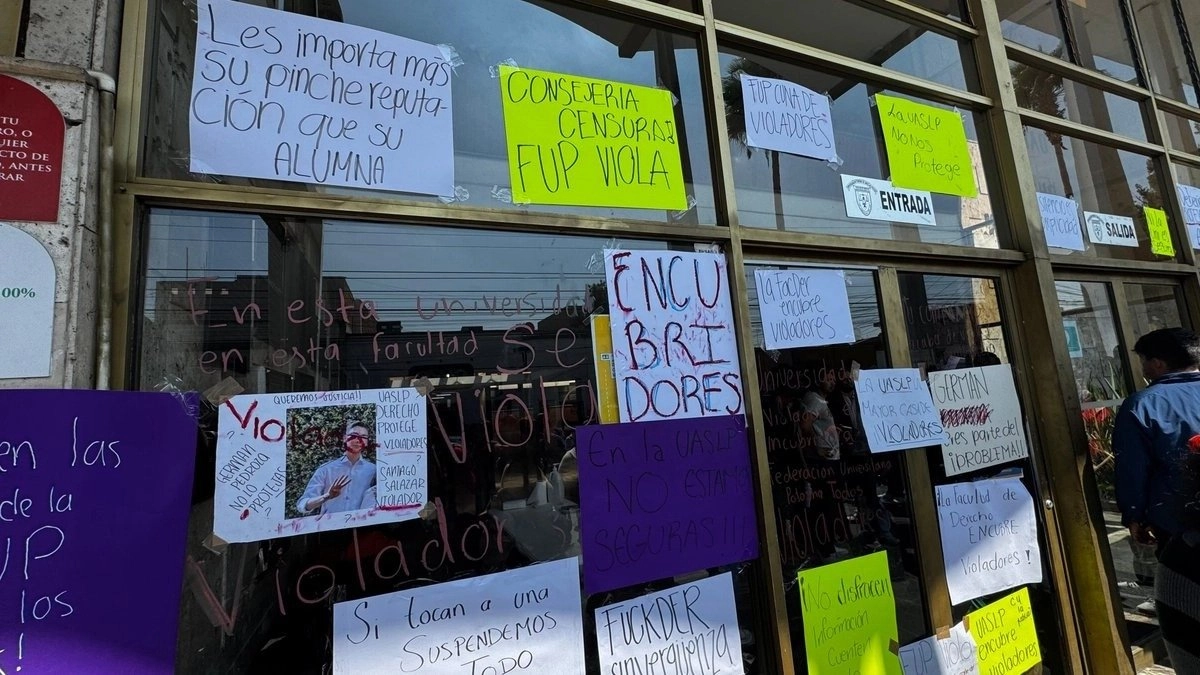 TU
RO, O
CTO DE
O, ANTES
RAR
100%
Les importa mas
su pinche reputa-
ción que su
ALUMNA
CONSEJERIA
CENSURA
FUP VIOLA
FUP CUNA DE
VIOLADORES
La UASLP
No Nos
Protege
ENTRADA
SALIDA
En esta universidad
en esta facultad se
Viola
Violador
ENCU
BRI
DORES
La FacDer
encubre
violadores
LA UASLP
MAYOR CASA DE
VIOLADORES
GERMÁN
eres parte del
¡PROBLEMA!
QUEREMOS JUSTICIA!!
Violador
UASLP
DERCHO
PROTEGE
VIOLADORES
?
SANTIAGO
SALAZAR
VIOLADOR
?
GERMÁN
NO LO
PROTEJAS
?
en las
de la
UP
los
!
En la UASLP
NO ESTAMOS
SEGURAS!!!
universidad
Federación Universitaria
Potosina Todos
Violadores
La Facultad de
Derecho
ENCUBRE
Violadores!
Si tocan a una
SUSPENDEMOS
TODO
FUCKDER
sinvergüenza
¡No disfracen
Información
Cuenten
FUP
UASLP
encubre
violadores